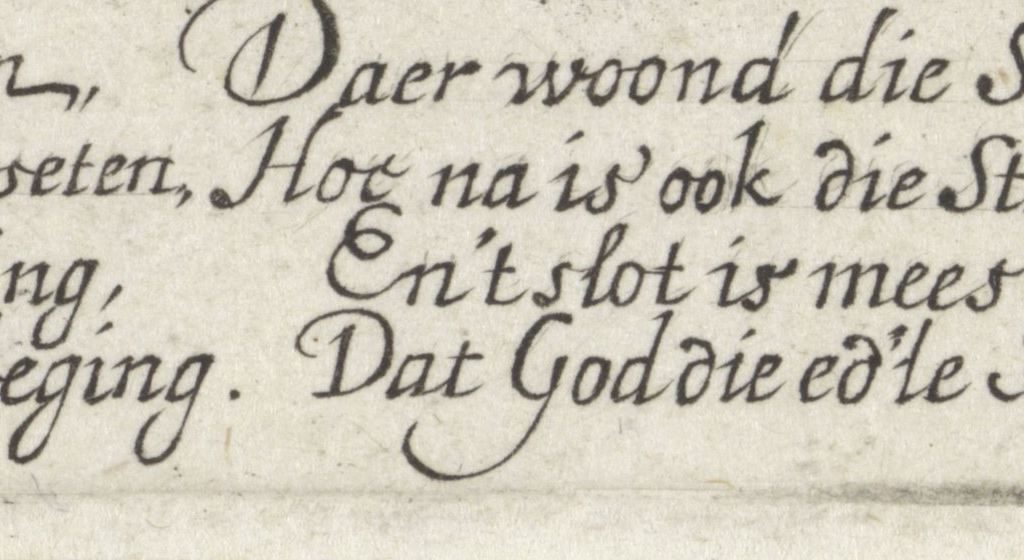 n, Daer woond die S
seten, Hoe na is ook die St
ing, En't slot is mees
eging. Dat God die ed'le